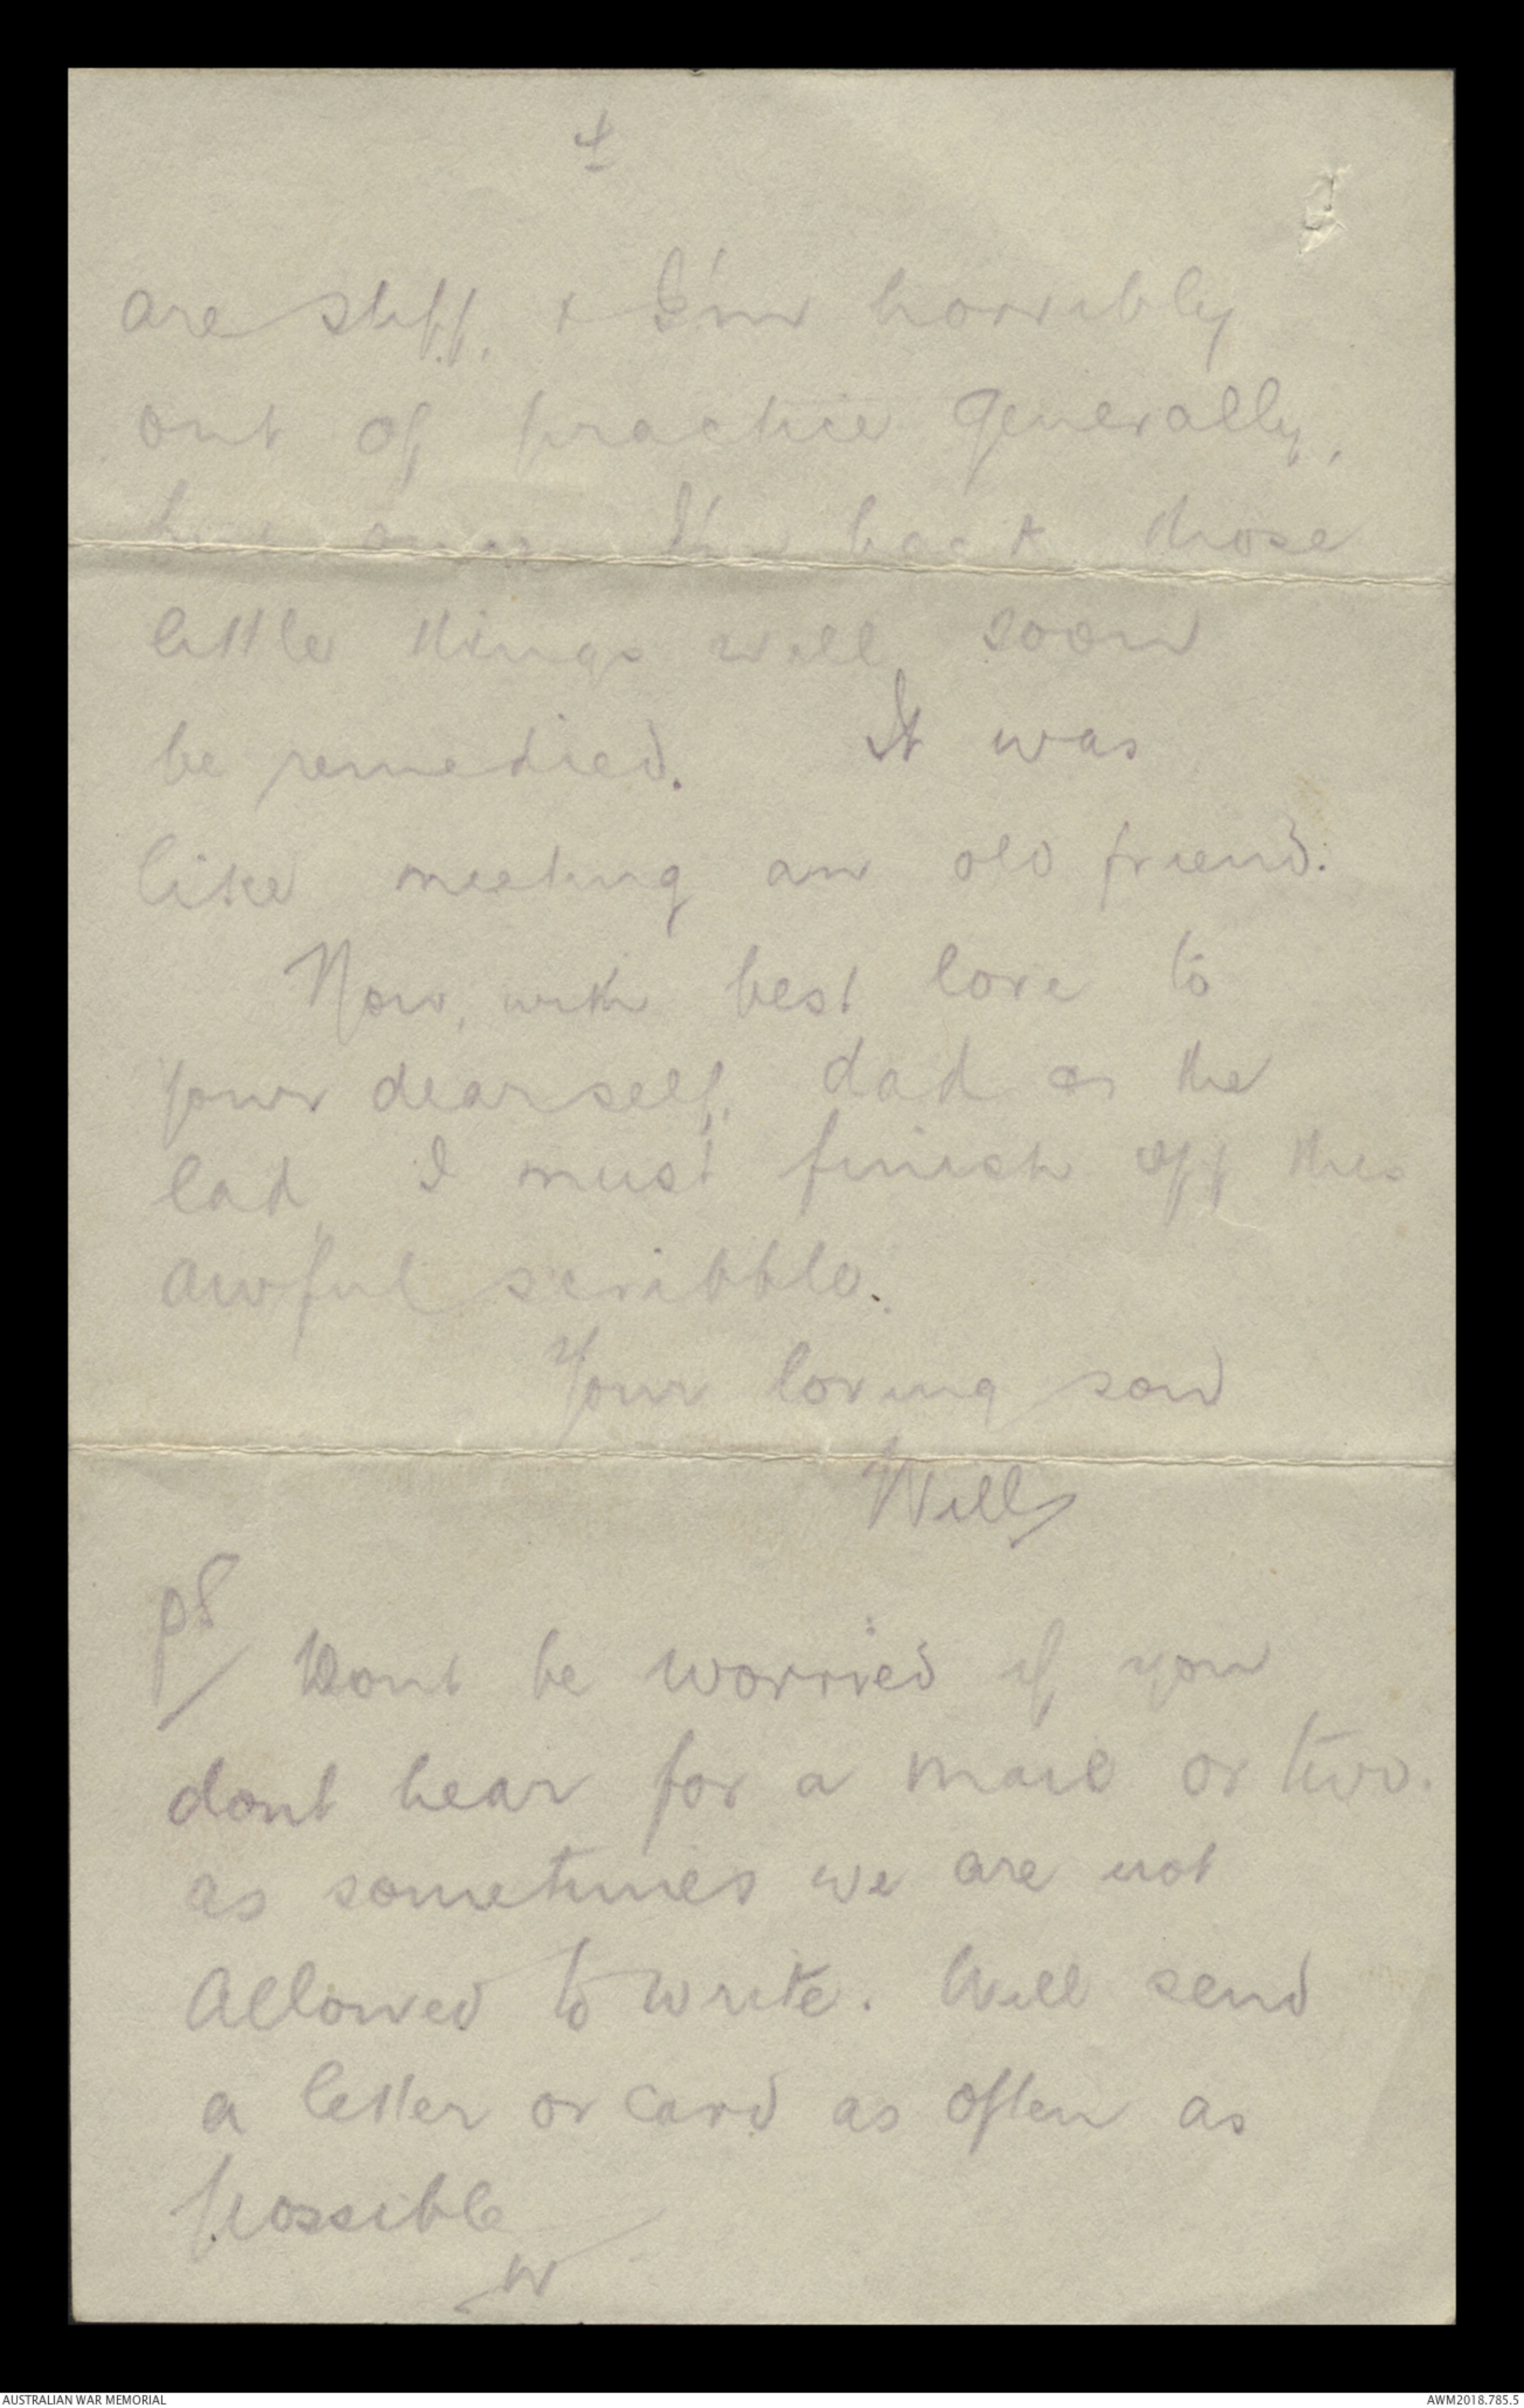 4
are stiff, & I'm horribly
out of practice generally,
but once I'm back those
little things will soon
be remedied. It was
like meeting an old friend.
Now, with best love to
your dearself, dad & the
lad, I must finish off this
awful scribble.
Your loving son
Will
PS/ Dont be worried if you
dont hear for a mail or two.
as sometimes we are not
allowed to write. Will send
a letter or card as often as
possible
W
AUSTRALIAN WAR MEMORIAL
AWM2018.785.5